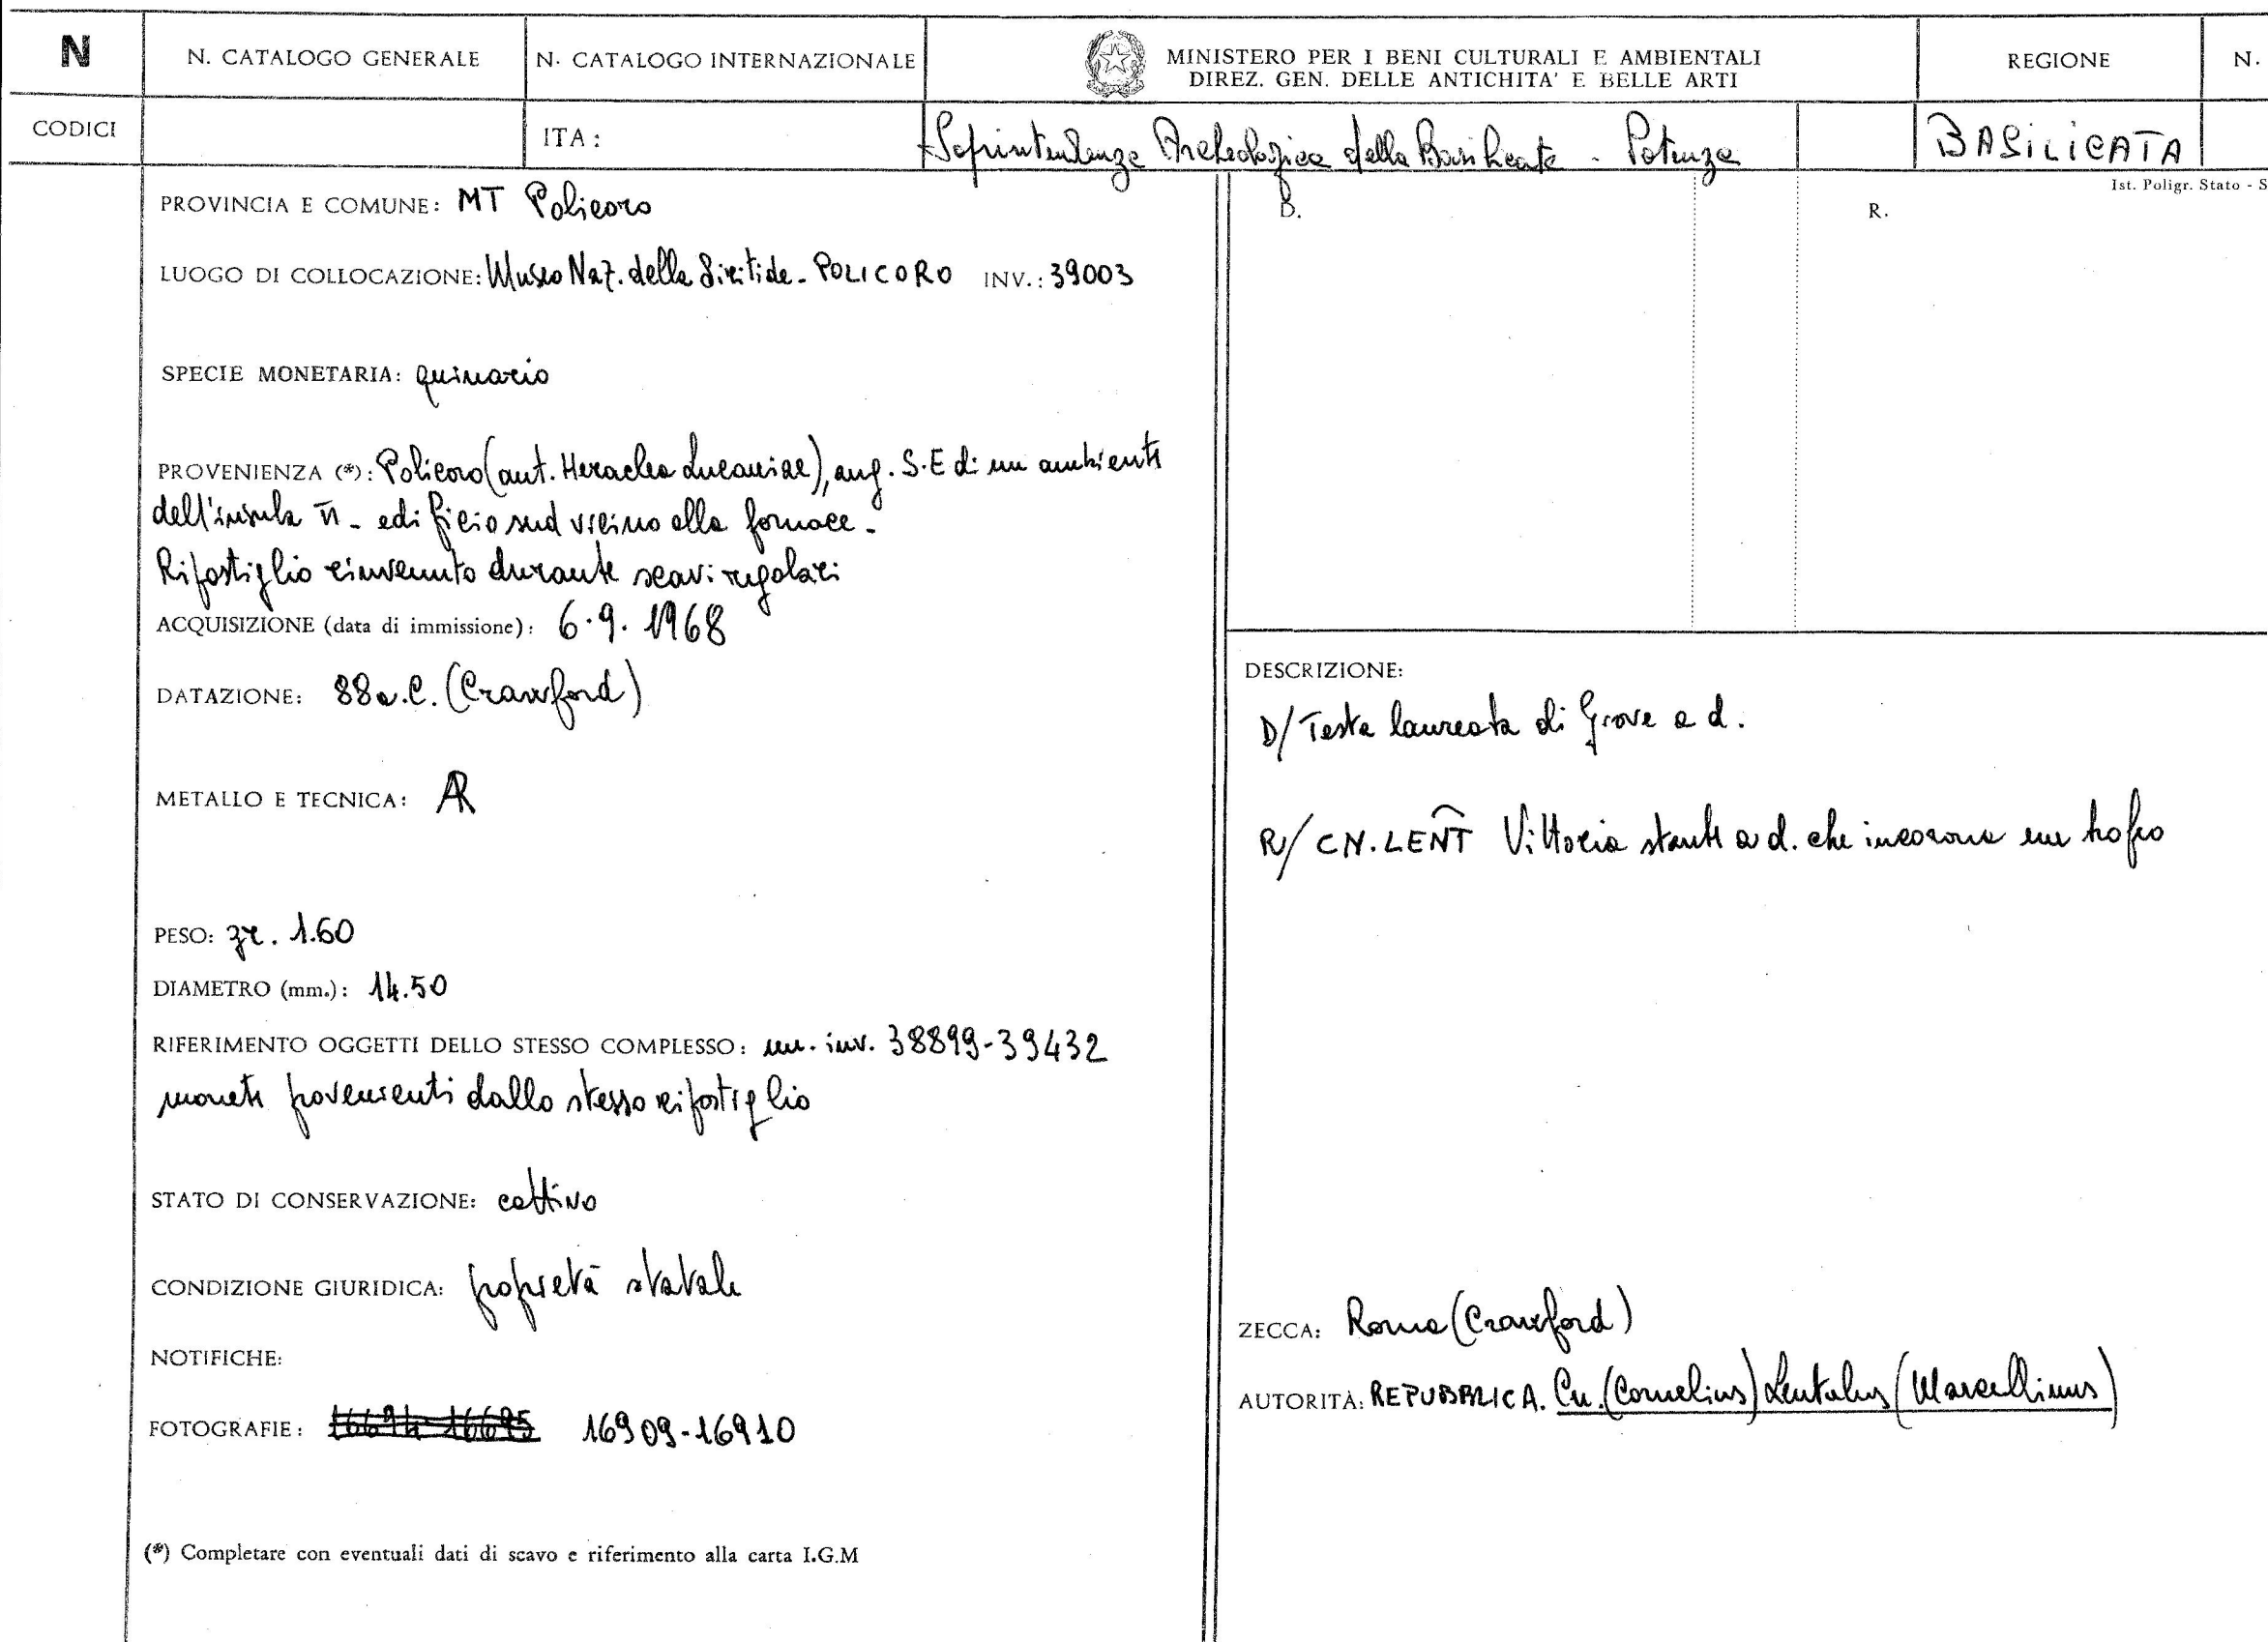 N
N. CATALOGO GENERALE
N. CATALOGO INTERNAZIONALE
MINISTERO PER I BENI CULTURALI E AMBIENTALI
DIREZ. GEN. DELLE ANTICHITA' E BELLE ARTI
REGIONE
N.
CODICI
ITA:
Soprintendenza Archeologica della Basilicata - Potenza
BASILICATA
Ist. Poligr. Stato - S
PROVINCIA E COMUNE: MT Policoro
LUOGO DI COLLOCAZIONE: Museo Naz. della Siritide - POLICORO INV.: 39003
SPECIE MONETARIA: quinario
PROVENIENZA (*): Policoro (ant. Heraclea Lucaniae), ang. S.E di un ambiente
dell'insula II - edificio sud vicino alla fornace -
Ripostiglio rinvenuto durante scavi regolari
ACQUISIZIONE (data di immissione): 6.9.1968
DATAZIONE: 88 a.C. (Crawford)
METALLO E TECNICA: AR
PESO: gr. 1.60
DIAMETRO (mm.): 14.50
RIFERIMENTO OGGETTI DELLO STESSO COMPLESSO: nn. inv. 38899-39432
monete provenienti dallo stesso ripostiglio
STATO DI CONSERVAZIONE: cattivo
CONDIZIONE GIURIDICA: proprietà statale
NOTIFICHE:
FOTOGRAFIE: 16909-16910
(*) Completare con eventuali dati di scavo e riferimento alla carta I.G.M
D.
R.
DESCRIZIONE:
D/ Testa laureata di Giove a d.
R/ CN.LENT Vittoria stante a d. che incorona un trofeo
ZECCA: Roma (Crawford)
AUTORITÀ: REPUBBLICA. Cn. (Cornelius) Lentulus (Marcellinus)